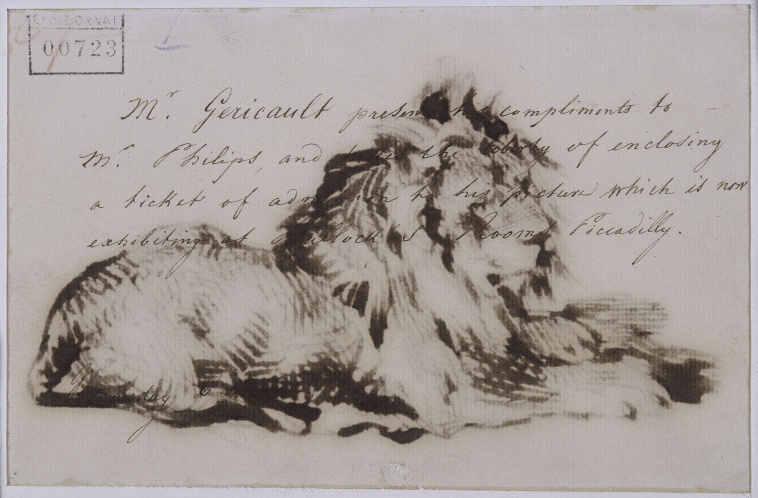 00723
Mr. Gericault presents his compliments to
Mr. Philips, and takes the liberty of enclosing
a ticket of admission to his Picture which is now
exhibiting at Bullock's Rooms Piccadilly.